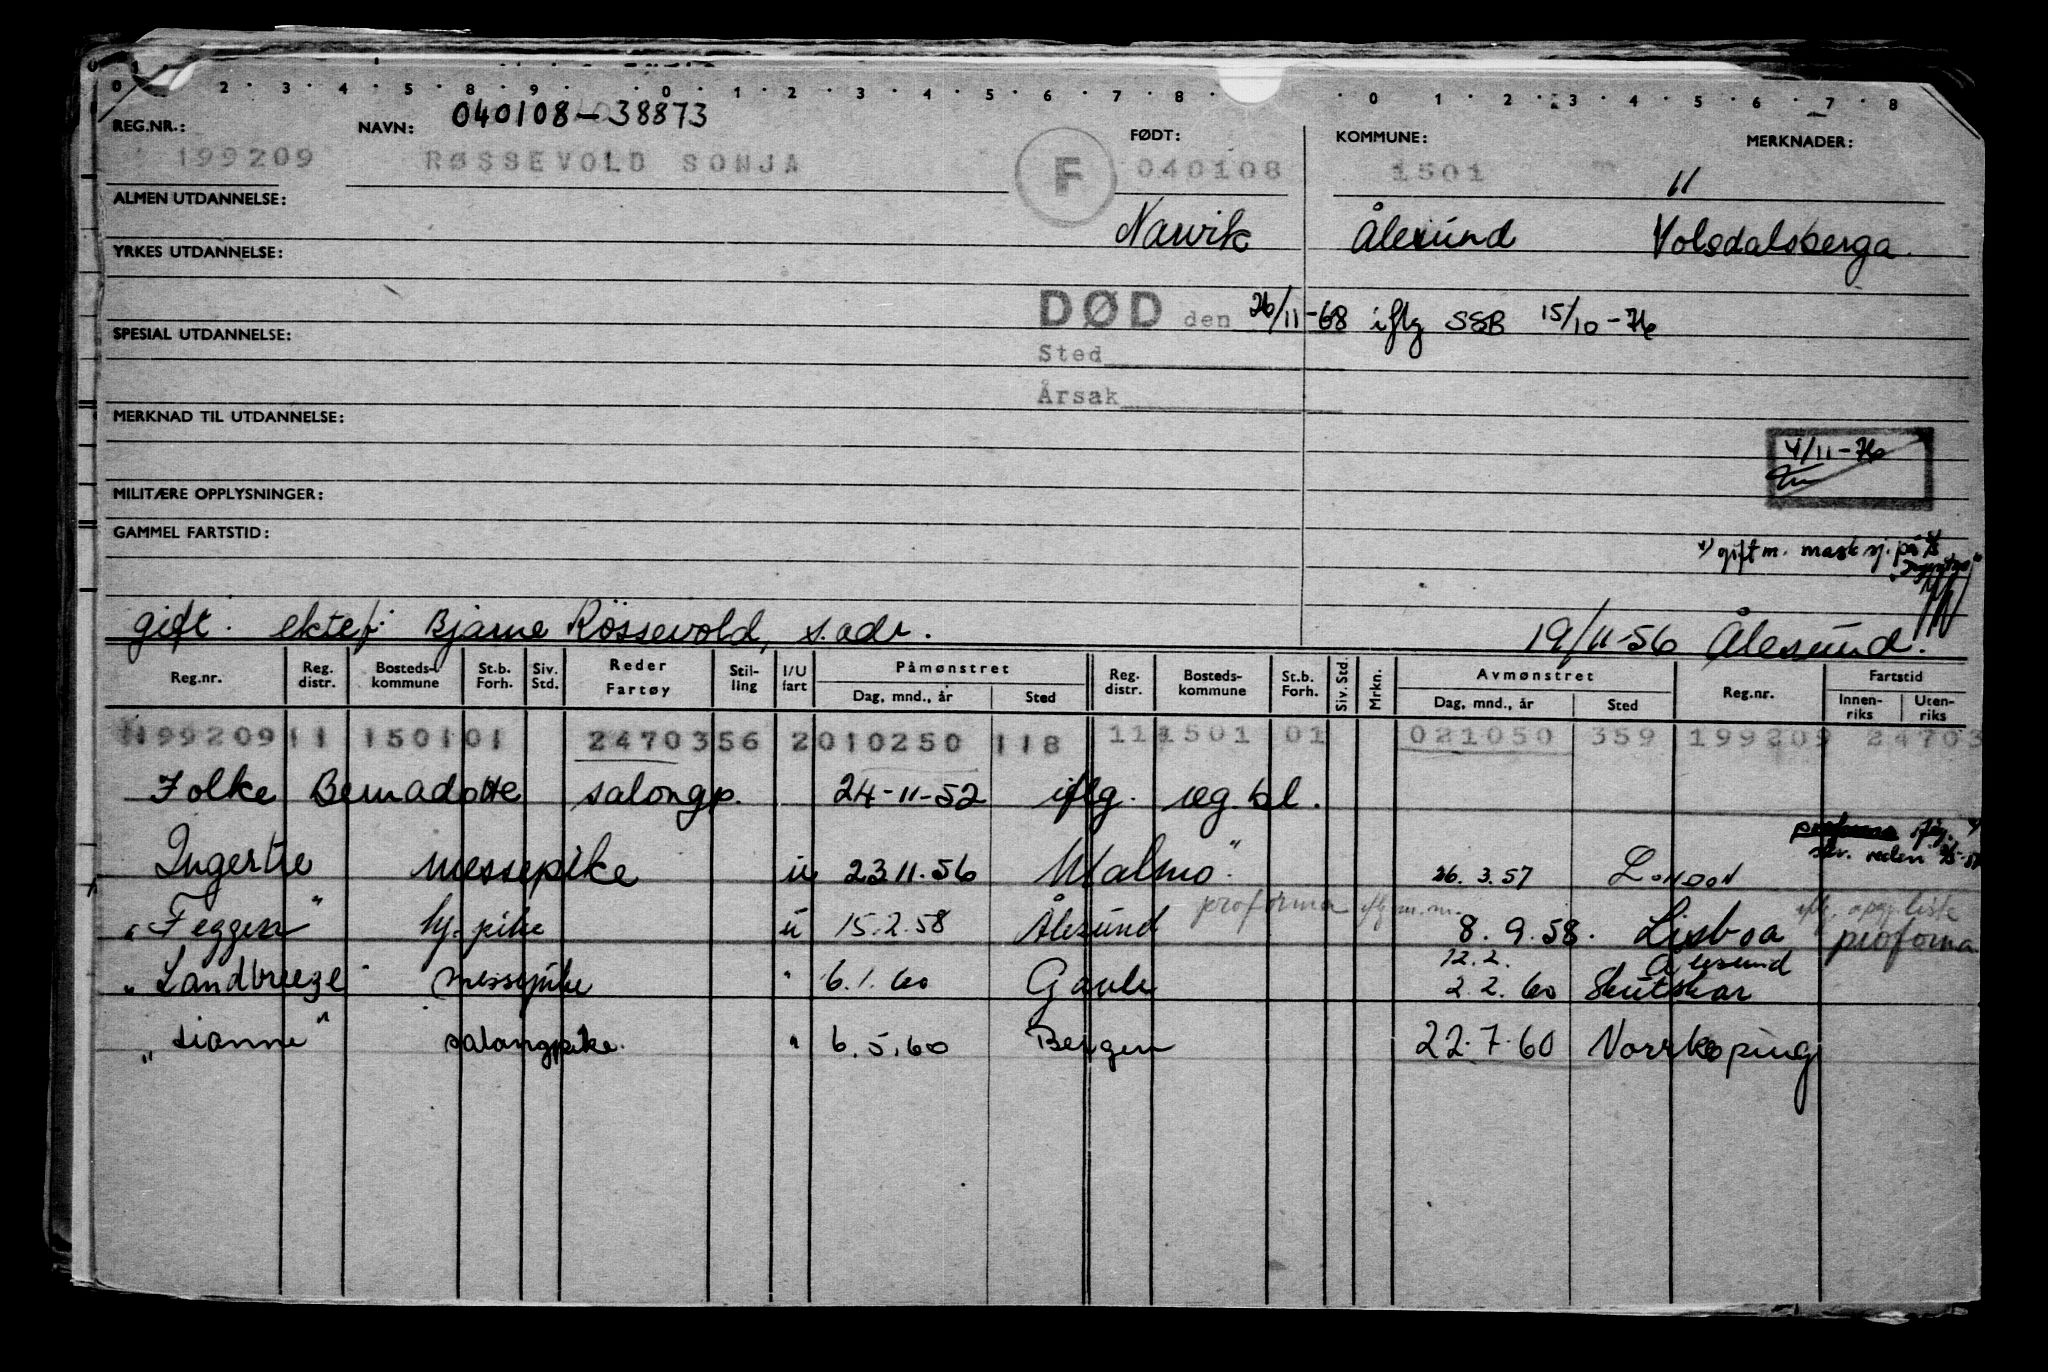 0 2 · 3 · 4 · 5 · 8 · 9 · 0 · 1 · 2 · 3 · 4 · 5 · 6 · 7 · 8 · 0 · 1 · 2 · 3 · 4 · 5 · 6 · 7 · 8
040108-38873
REG.NR.: NAVN: FØDT: KOMMUNE: MERKNADER:
199209 RØSSEVOLD SONJA F 040108 1501 11
ALMEN UTDANNELSE: Narvik Ålesund Volsdalsberga.
YRKES UTDANNELSE:
DØD den 26/11-68 iflg SSB 15/10-76
SPESIAL UTDANNELSE:
Sted
Årsak
MERKNAD TIL UTDANNELSE:
4/11-76
MILITÆRE OPPLYSNINGER:
GAMMEL FARTSTID:
x) gift m. mask sj. på
gift. ektef: Bjarne Røssevold, s.adr. 19/11-56 Ålesund.
Reg.nr. Reg. distr. Bosteds-kommune St.b. Forh. Siv. Std. Reder Fartøy Stil-ling I/U fart Påmønstret Dag, mnd., år Sted Reg. distr. Bosteds-kommune St.b. Forh. Siv. Std. Mrkn. Avmønstret Dag, mnd., år Sted Reg.nr. Fartstid Innen-riks Uten-riks
199209 11 150101 2470356 2 010250 118 11 1501 01 021050 359 199209 24703
Folke Bernadotte salongp. 24-11-52 iflg. reg. bl.
Ingertre messepike u 23 11.56 Malmö 26.3.57 London
"Feggen" hj. pike u 15.2.58 Ålesund proforma iflg m.m. 8.9.58. Lisboa iflg. opg. liste proforma
12.2. Ålesund
"Landbreeze" messepike " 6.1.60 Gävle 2.2.60 Skutskär
"Lianne" salongpike. " 6.5.60 Bergen 22.7.60 Norrkøping